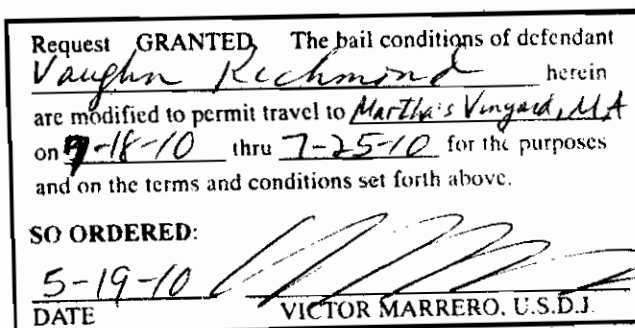 Request GRANTED The bail conditions of defendant
Vaughn Richmond herein
are modified to permit travel to Martha's Vinyard, MA
on 7-18-10 thru 7-25-10 for the purposes
and on the terms and conditions set forth above.
SO ORDERED:
5-19-10
DATE VICTOR MARRERO, U.S.D.J.